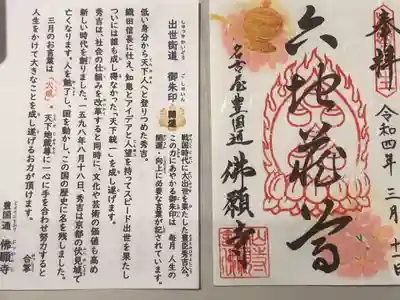 出世街道 御朱印 開運
しゅっせかいどう ごしゅいん
戦国時代に大出世を果たした豊臣秀吉公。
この力にあやかる御朱印は 毎月 人生の
開運・向上に必要な言葉が記されています。
低い身分から天下人へと登りつめた秀吉。
織田信長に仕え、知恵とアイデアと人望を持ってスピード出世を果たし
ついには誰も成し得なかった「天下統一」を成し遂げます。
秀吉は、社会の仕組みを改革すると同時に、文化や芸術の価値も高め
新しい時代を創りました。一五九八年八月十八日、秀吉は京都の伏見城で
亡くなります。人を魅了し、国を動かし、この国の歴史に名を残しました。
三月のお言葉は 。天下地蔵尊に一心に手を合わせ努力すると
人生をかけて大きなことを成し遂げるお力が頂けます。
合掌
豊国通 佛願寺
奉拝
令和四年 三月十一日
六地蔵尊
名古屋豊国通 佛願寺